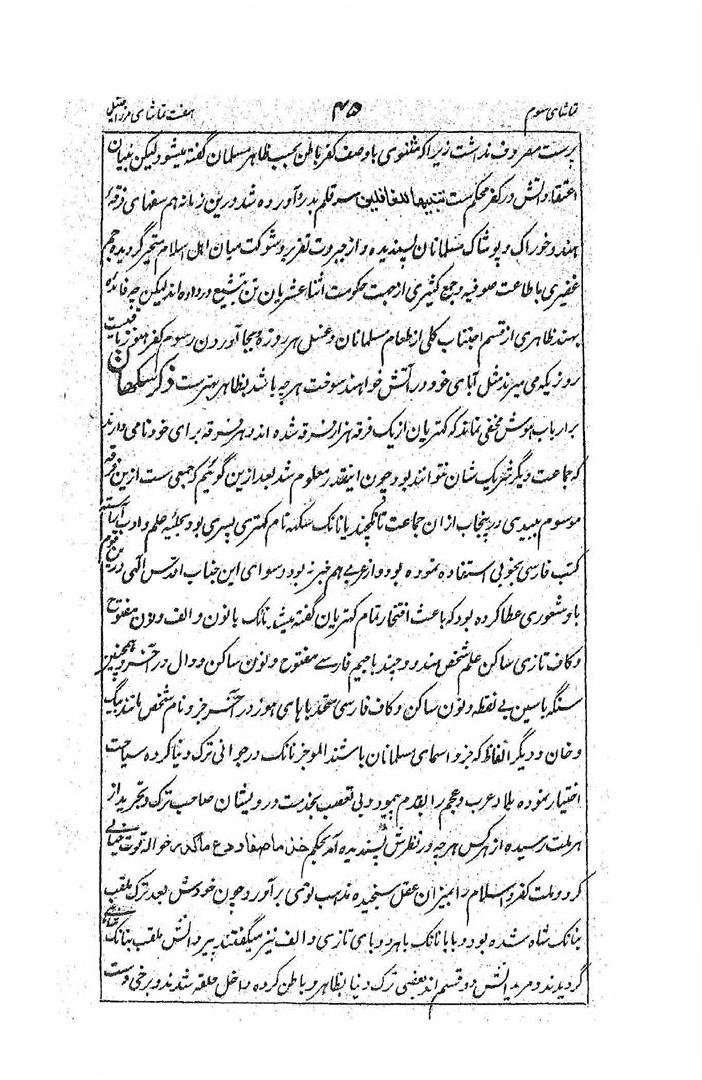 تماشای سوم ۴۵ هفت تماشای مرزا قتیل
پرست معروف نداشت زیراکه مثنوی باوصف کفر باطن بحسب ظاهر مسلمان گفته میشود لیکن بنیان
اعتقاد دلش در کفر محکم ست تنبیها للغافلین سر قلم بدر آورده شد درین زمانه هم سفهای فرقهٔ
هندو خوراک و پوشاک مسلمانان پسندیده و از جبروت تقریر و شوکت میان اهل اسلام متحیر گردیده جم
غفیری باطاعت صوفیه و جمع کثیری از جهت حکومت اثنا عشریان تن بتشیع در داده اند لیکن چه فائده
بهند ظاهری از قسم اجتناب کلی از طعام مسلمانان و غسل هر روزه و بجا آوردن رسوم کفر هنوز باقیست
روزیکه می میرند مثل آبای خود در آتش خواهند سوخت هر چه باشد بظاهر بهترست ذکر سکهان
بر ارباب هوش مخفی نماند که کهتریان از یک فرقه هزار فرقه شده اند و هر فرقه برای خود نامی دارند
که جماعت دیگر شریک شان نتوانند بود چون اینقدر معلوم شد بعد ازین گوئیم که جمعی ست ازین فرقه
موسوم ببیدی در پنجاب از ان جماعت نانکچند یا نانک سنگه نام کهتری پسری بود بحلیه علم و ادب آراسته
کتب فارسی بخوبی استفاده نموده بود و از عربی هم خبر نه بود سوای این جناب اقدس الهی درین قوم
باو شعوری عطا کرده بود که باعث افتخار تمام کهتریان گفته میشد نانک بانون و الف و نون مفتوح
و کاف تازی ساکن علم شخص هندو و چند باجیم فارسی مفتوح و نون ساکن و دال در آخر و همچنین
سنگه باسین بی نقطه و نون ساکن و کاف فارسی متحد باهای هوز در آخر جزو نام شخص مانند بیگ
و خان و دیگر الفاظ که جزو اسمای مسلمانان باشند الموجز نانک در جوانی ترک دنیا کرده سیاحت
اختیار نموده بلاد عرب و عجم را بقدم پیمود و بی تعصب بخدمت درویشان صاحب ترک و تجرید از
هر ملت رسیده از هر کس هر چه در نظرش پسندیده آمد بحکم خذ ما صفا و دع ما کدر حواله قوت خیالی
کرد و ملت کفر و اسلام را بمیزان عقل سنجیده مذهب نومی برآورد و چون خودش بعد ترک ملقب
بنانک شاه شده بود و بابا نانک با هر دو بای تازی و الف نیز میگفتند پیروانش ملقب بنانک شاهی
گردیدند و مریدانش دو قسم اند بعضی ترک دنیا بظاهر و باطن کرده داخل حلقه شدند و برخی دست